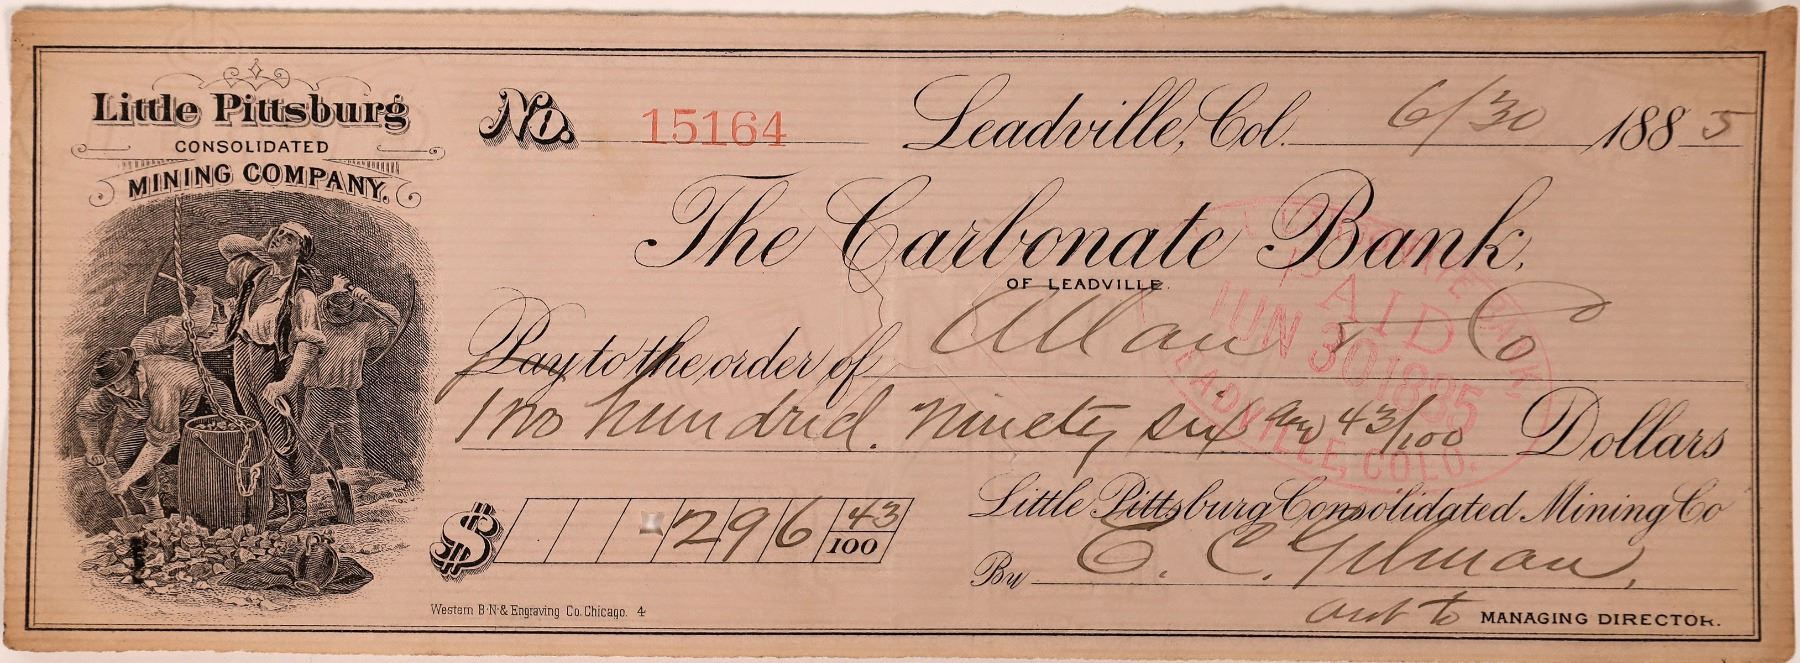 Little Pittsburg
CONSOLIDATED
MINING COMPANY.
No. 15164
Leadville, Col. 6/30 1885
The Carbonate Bank,
OF LEADVILLE.
Pay to the order of Allan & Co
Two hundrid. Ninety six and 43/100 Dollars
$ 296 43/100
Little Pittsburg Consolidated Mining Co
By E. C. Gilman,
asst to MANAGING DIRECTOR.
Western B.N. & Engraving Co. Chicago. 4
CARBONATE BANK,
PAID
JUN 30 1885
LEADVILLE, COLO.